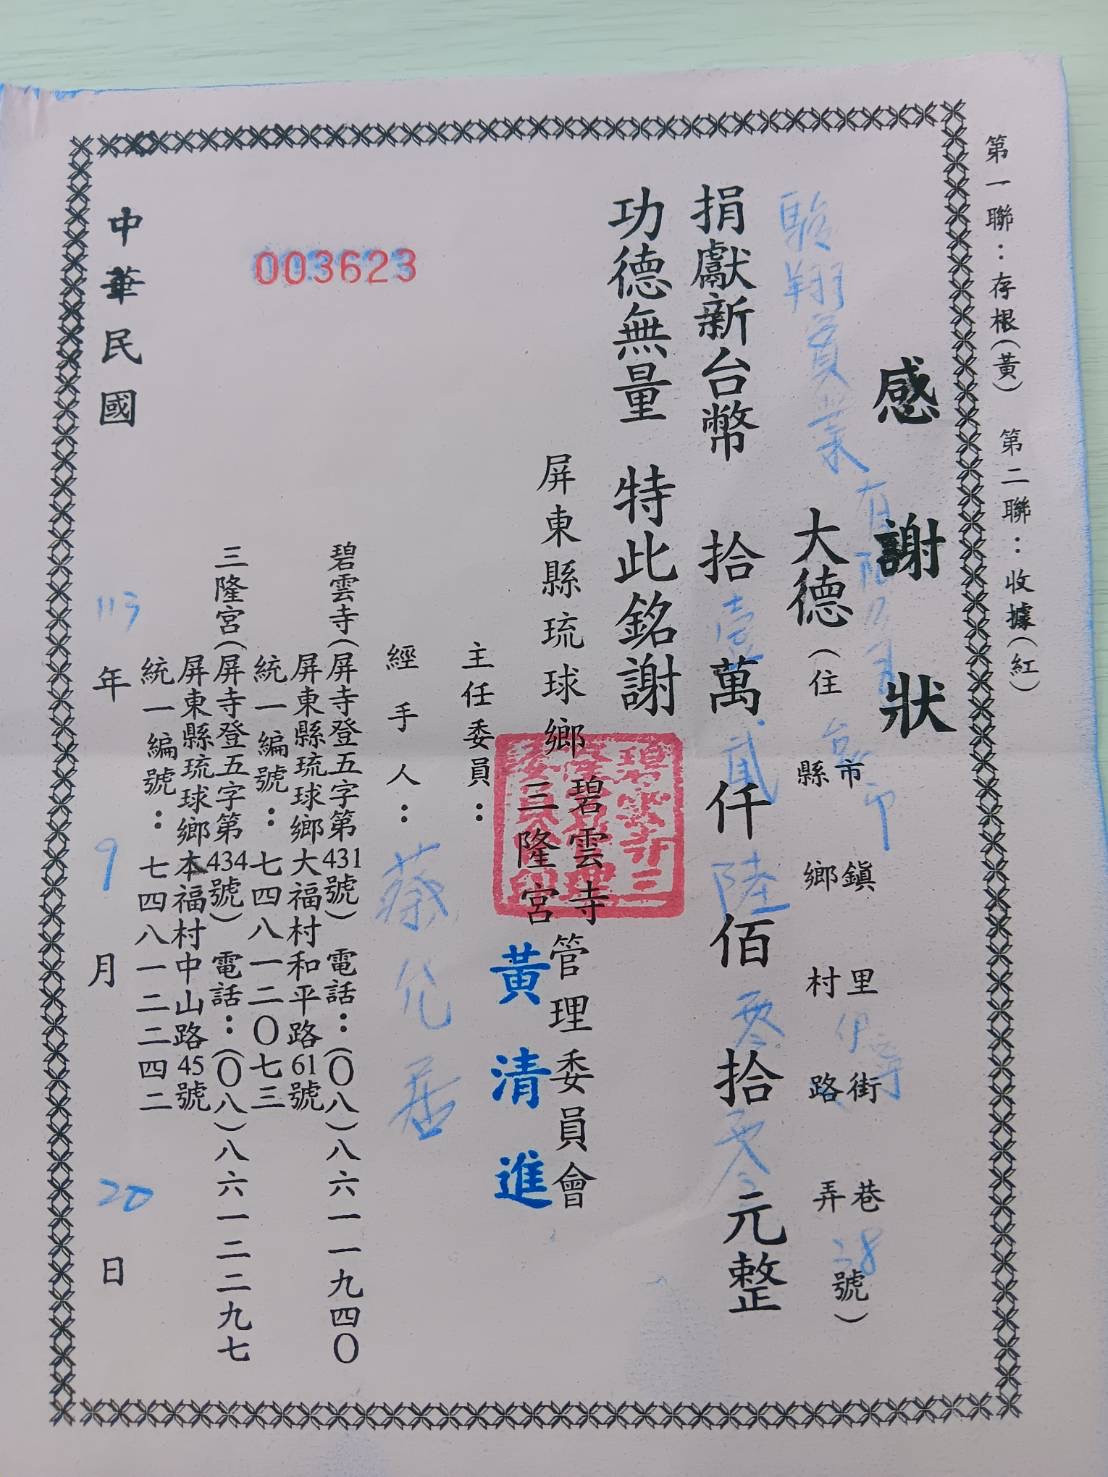 第一聯：存根(黃) 第二聯：收據(紅)
感謝狀
駿翔實業有限公司
大德(住 市縣 鎮鄉 里村 街路 巷弄 38 號)
捐獻新台幣 拾壹萬貳仟陸佰零拾零元整
功德無量 特此銘謝
屏東縣琉球鄉 碧雲寺 三隆宮 管理委員會
主任委員：黃清進
經手人：蔡允居
碧雲寺(屏寺登五字第431號) 電話：(〇八)八六一一九四〇
屏東縣琉球鄉大福村和平路61號
統一編號：七四八一二〇七三
三隆宮(屏寺登五字第434號) 電話：(〇八)八六一二二九七
屏東縣琉球鄉本福村中山路45號
統一編號：七四八一二二四二
003623
中華民國 113 年 9 月 20 日